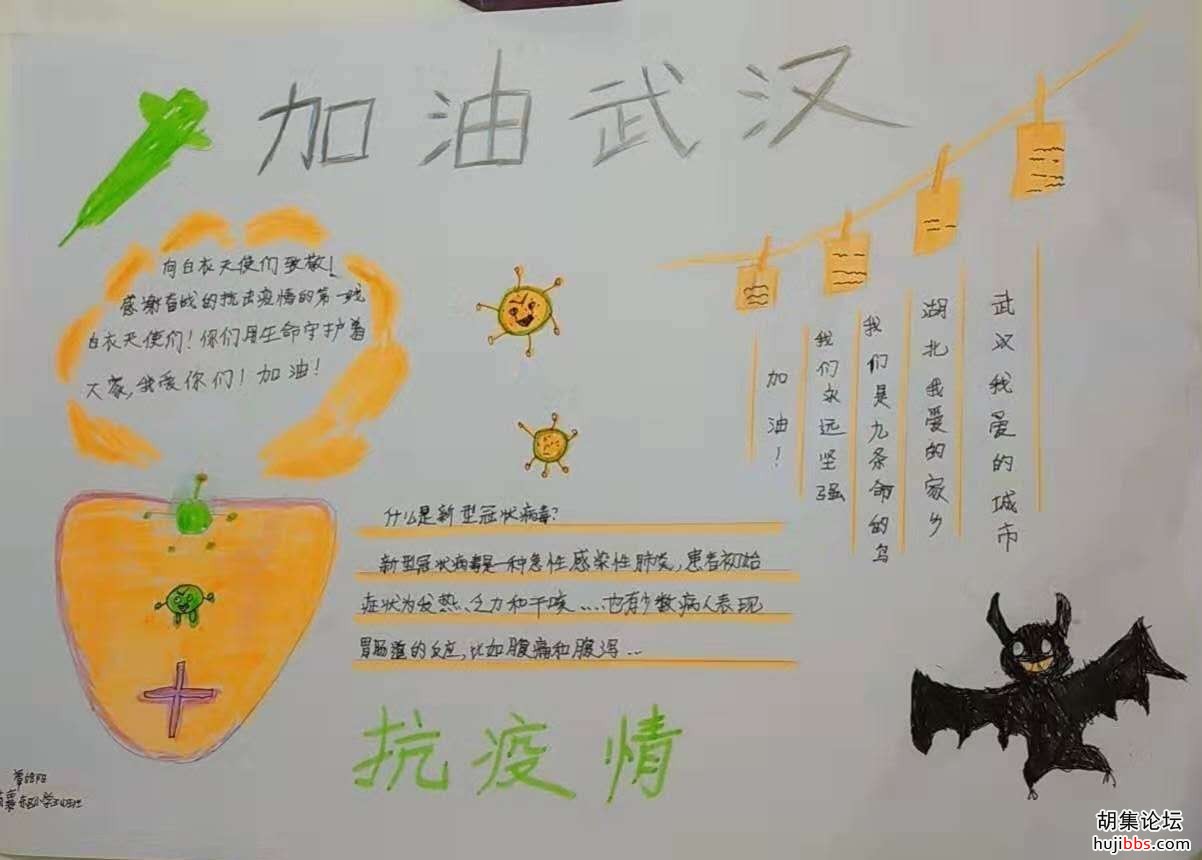 加油武汉
向白衣天使们致敬!
感谢奋战的抗击疫情的第一线
白衣天使们!你们用生命守护着
大家,我爱你们!加油!
武汉我爱的城市
湖北我爱的家乡
我们是九条命的鸟
我们永远坚强
加油!
什么是新型冠状病毒?
新型冠状病毒是一种急性感染性肺炎,患者初始
症状为发热、乏力和干咳……也有少数病人表现
胃肠道的反应,比如腹痛和腹泻…
抗疫情
胡集论坛
hujibbs.com